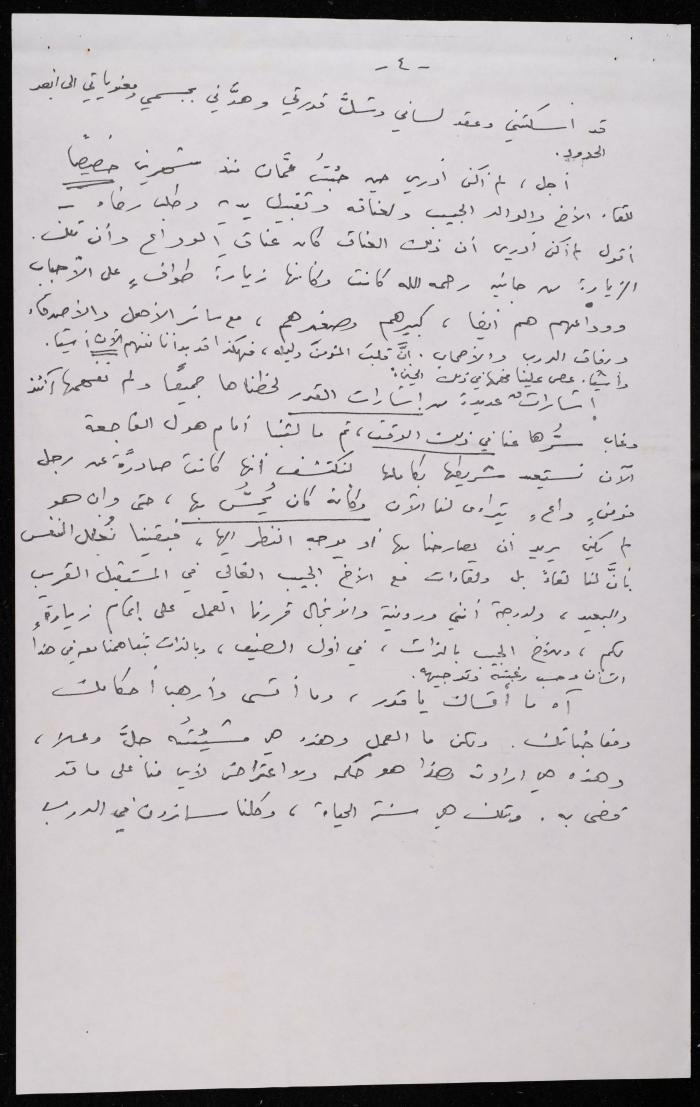 - ٤ -
قد أسكتني وعقد لساني وشلَّ قدرتي وهدَّني بجسمي ومعنوياتي الى ابعد
الحدود.
أجل، لم أكن أدري حين جئتُ عمَّان منذ شهرين خصيصًا
للقاء الأخ والوالد الحبيب ولعناقه وتقبيل يديه وطلب رضاه -
أقول لم أكن أدري أن ذلك العناق كان عناق الوداع وأن تلك
الزيارة من جانبه رحمه الله كانت وكأنها زيارة طوافٍ على الأحباب
ووداعهم هم أيضا، كبيرهم وصغيرهم، مع سائر الأهل والأصدقاء
ورفاق الدرب والأحباب. انَّ قلبَ المؤمنَ دليله، فهكذا قد بدأنا نفهم الآن أشيا.
وأشيا. عصى علينا فهمها في ذلك الحين:
إشارات عديدة من إشارات القدر لحظناها جميعًا ولم نفهمها آنئذ
وغاب سُّرها عنا في ذلك الوقت، ثم ما لبثنا أمام هول الفاجعة
الآن نستعيد شريطها بكاملها لنكتشف أنها كانت صادرًة عن رجل
مؤمنٍ واعٍ يتراءى لنا الآن وكأنه كان يُحسُّ بها، حتى وان هو
لم يكن يريد ان يصارحنا بها او يوجه النظر اليها، فبقينا نُعلل النفس
بأنَّ لنا لقاءً بل ولقاءات مع الأخ الحبيب الغالي في المستقبل القريب
والبعيد، ولدرجة أنني ورونية والأنجال قررنا العمل على إتمام زيارةٍ
لكم، وللأخ الحبيب بالذات، في أول الصيف، وبالذات بتفاهمنا معه في هذا
الشأن وحسب رغبته وتوجيهه.
آه ما أقساك يا قدر، وما أقسى وأرهب أحكامك
ومفاجآتك. ولكن ما العمل وهذه هي مشيئتُه جلَّ وعلا،
وهذه هي ارادته وهذا هو حكمه ولا اعتراض لأي منا على ما قد
قضى به. وتلك هي سنة الحياة، وكلنا سائرون في الدرب